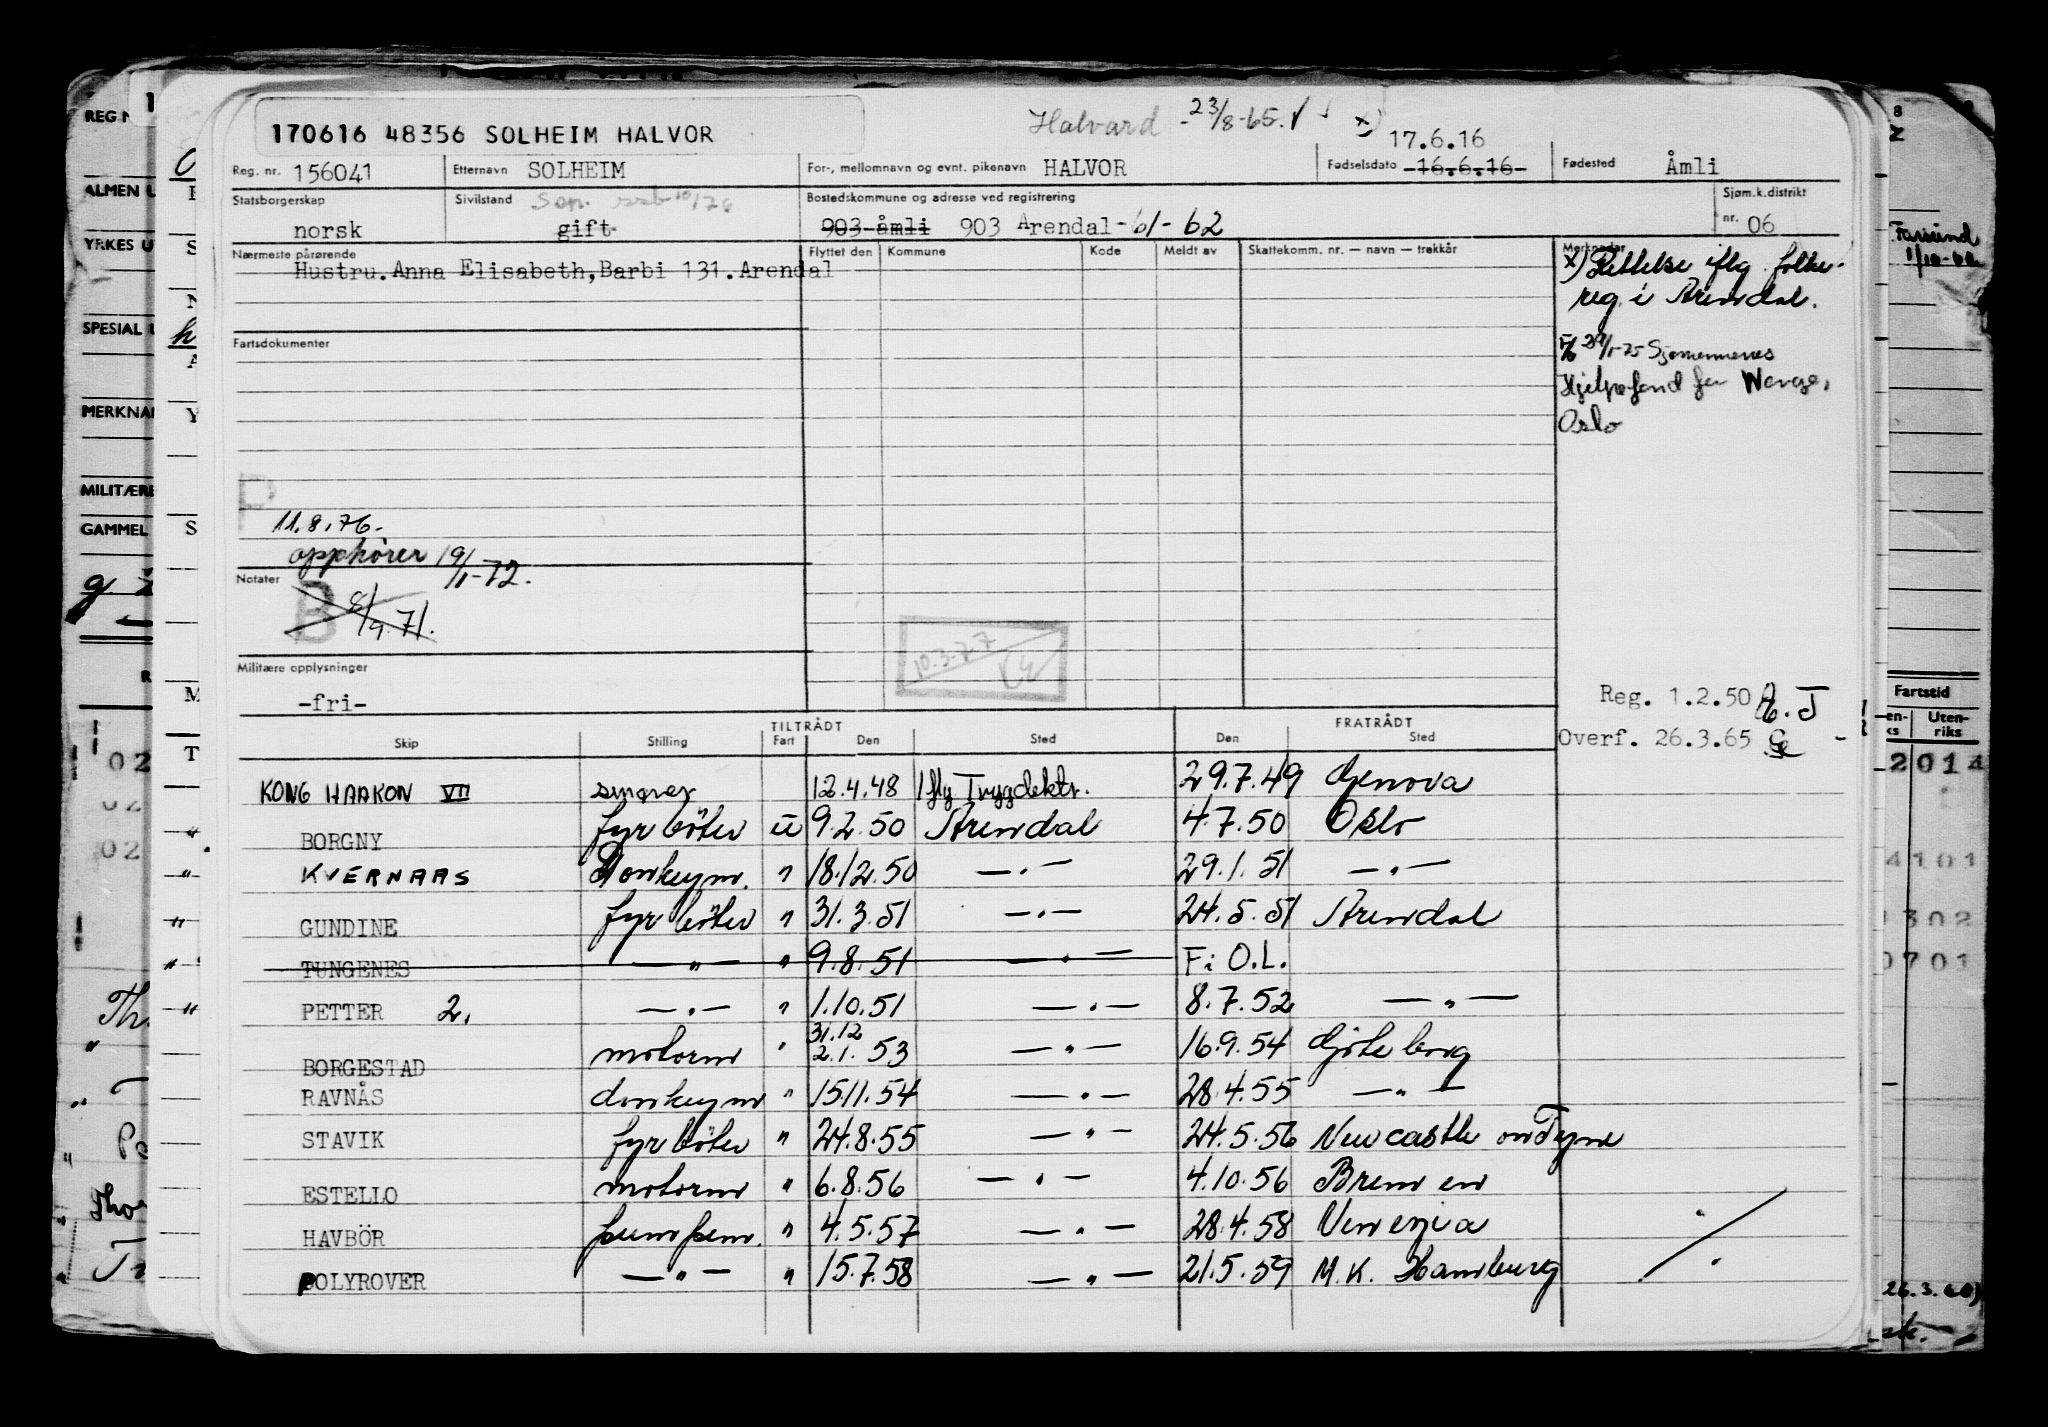 170616 48356 SOLHEIM HALVOR
Halvard - 23/8-65. x)
17.6.16
Reg. nr. 156041 Etternavn SOLHEIM For-, mellomnavn og evnt. pikenavn HALVOR Fødselsdato 16.6.16 Fødested Åmli
Statsborgerskap norsk Sivilstand gift Sep. Bostedskommune og adresse ved registrering 903 åmli 903 Arendal -61-62 Sjøm.k.distrikt nr. 06
Nærmeste pårørende Flyttet den Kommune Kode Meldt av Skattekomm. nr. — navn — trekkår Merknader
Hustru. Anna Elisabeth, Barbi 131. Arendal
x) Rettelse iflg. folke-
reg. i Arendal.
29/1-75 Sjømennenes
Hjelpefond for Norge,
Oslo
Fartsdokumenter
P
11.8.76.
opphörer 19/1-72.
Notater
B 8/9.71.
10.3.77
Militære opplysninger
-fri-
Reg. 1.2.50
Overf. 26.3.65
TILTRÅDT FRATRÅDT
Skip Stilling Fart Den Sted Den Sted
KONG HAAKON VII smører 12.4.48 Iflg Trygdektr. 29.7.49 Genova
" BORGNY fyrböter u 9.2.50 Arendal 4.7.50 Oslo
" KVERNAAS Donkeym. " 18.12.50 —"— 29.1.51 —"—
" GUNDINE fyrböter " 31.3.51 —"— 24.5.51 Arendal
" TUNGENES —"— " 9.8.51 —"— F: O.L.
" PETTER 2. —"— " 1.10.51 —"— 8.7.52 —"—
31.12
BORGESTAD motorm " 2.1.53 —"— 16.9.54 Göteborg
RAVNÅS donkeym " 15.11.54 —"— 28.4.55 —"—
STAVIK fyrböter " 24.8.55 —"— 24.5.56 Newcastle on Tyne
ESTELLO motorm " 6.8.56 —"— 4.10.56 Bremen
HAVBÖR pumpem. " 4.5.57 —"— 28.4.58 Venezia
POLYROVER —"— " 15.7.58 —"— 21.5.59 M.K. Hamburg
REG N
ALMEN U
YRKES U
SPESIAL U
MERKNA
MILITÆRE
GAMMEL
02
02
02
Farsund
1/10-62
Fartstid
Uten-
riks
2014
4101
1302
0701
26.3.60)